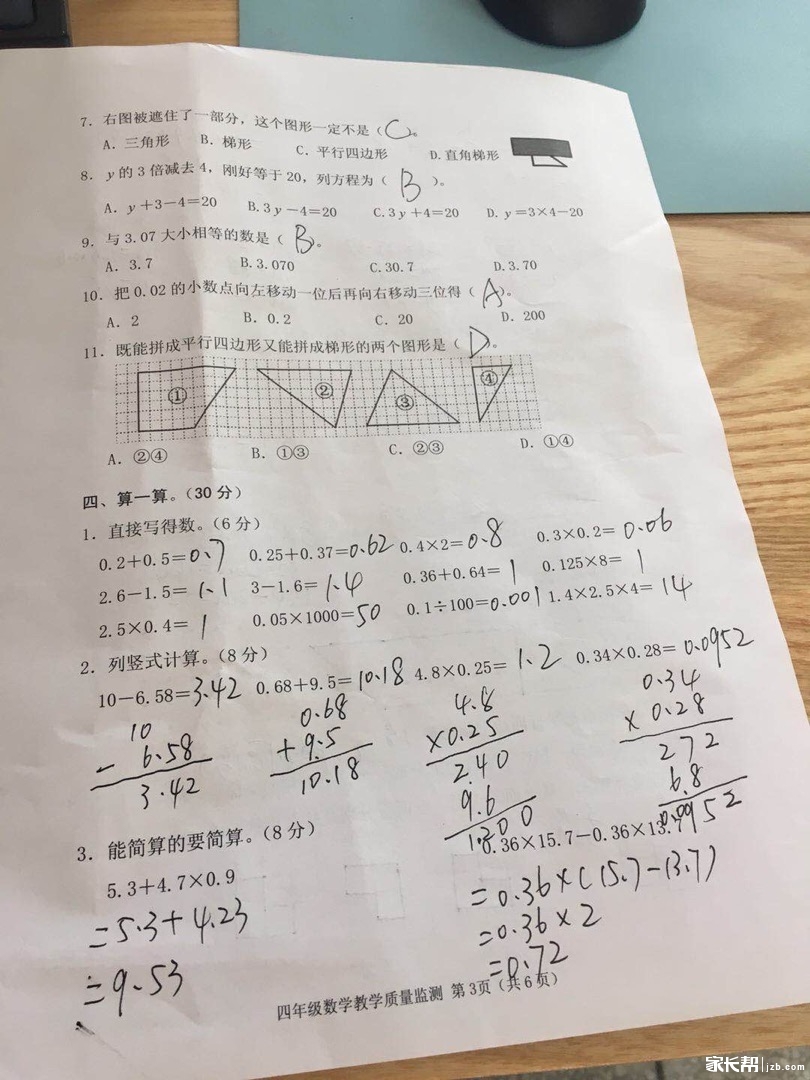 7. 右图被遮住了一部分，这个图形一定不是（C）。
A. 三角形 B. 梯形 C. 平行四边形 D. 直角梯形
8. y的3倍减去4，刚好等于20，列方程为（B）。
A. y+3-4=20 B. 3y-4=20 C. 3y+4=20 D. y=3×4-20
9. 与3.07大小相等的数是（B）。
A. 3.7 B. 3.070 C. 30.7 D. 3.70
10. 把0.02的小数点向左移动一位后再向右移动三位得（A）。
A. 2 B. 0.2 C. 20 D. 200
11. 既能拼成平行四边形又能拼成梯形的两个图形是（D）。
① ② ③ ④
A. ②④ B. ①③ C. ②③ D. ①④
四、算一算。（30分）
1. 直接写得数。（6分）
0.2+0.5=0.7 0.25+0.37=0.62 0.4×2=0.8 0.3×0.2=0.06
2.6-1.5=1.1 3-1.6=1.4 0.36+0.64=1 0.125×8=1
2.5×0.4=1 0.05×1000=50 0.1÷100=0.001 1.4×2.5×4=14
2. 列竖式计算。（8分）
10-6.58=3.42 0.68+9.5=10.18 4.8×0.25=1.2 0.34×0.28=0.0952
10 0.68 4.8 0.34
- 6.58 + 9.5 ×0.25 × 0.28
3.42 10.18 2.40 272
9.6 6.8
1.200 0.0952
3. 能简算的要简算。（8分）
5.3+4.7×0.9 0.36×15.7-0.36×13.7
=5.3+4.23 =0.36×(15.7-13.7)
=9.53 =0.36×2
=0.72
四年级数学教学质量监测 第3页（共6页）
家长帮 jzb.com